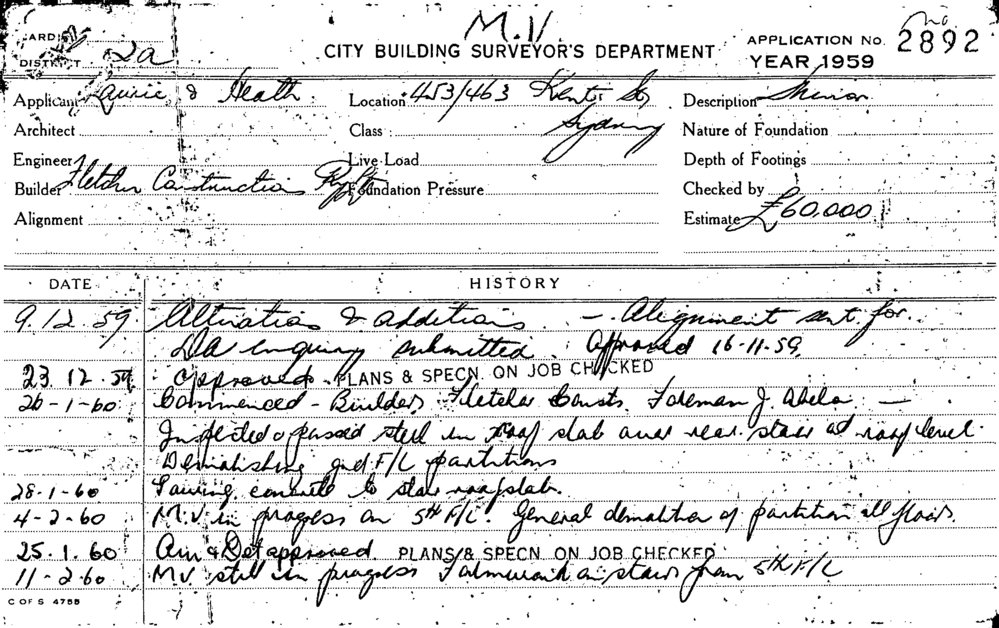 M.V
CARD
DISTRICT 2a
CITY BUILDING SURVEYOR'S DEPARTMENT
APPLICATION No. No 2892
YEAR 1959
Applicant Laurie & Heath Location 453/463 Kent St, Description
Architect Class Sydney Nature of Foundation
Engineer Live Load Depth of Footings
Builder Fletcher Construction Pty Foundation Pressure Checked by
Alignment Estimate £60,000
DATE HISTORY
9.12.59 Alterations & additions - Alignment sent for
DA enquiry submitted. Approved 16-11-59.
23.12.59 approved. PLANS & SPECN. ON JOB CHECKED
20-1-60 Commenced - Builders Fletcher Consts. Foreman J. Abela -
Inspected & passed steel in roof slab over rear stairs at roof level.
Demolishing gnd F/L partitions
28-1-60 Pouring concrete to stair roof slab.
4-2-60 M.V. in progress on 5th F/L. General demolition of partition all floors.
25.1.60 Am & Det approved PLANS & SPECN. ON JOB CHECKED
11-2-60 M.V. still in progress Formwork on stairs from 5th F/L
C OF S 4755